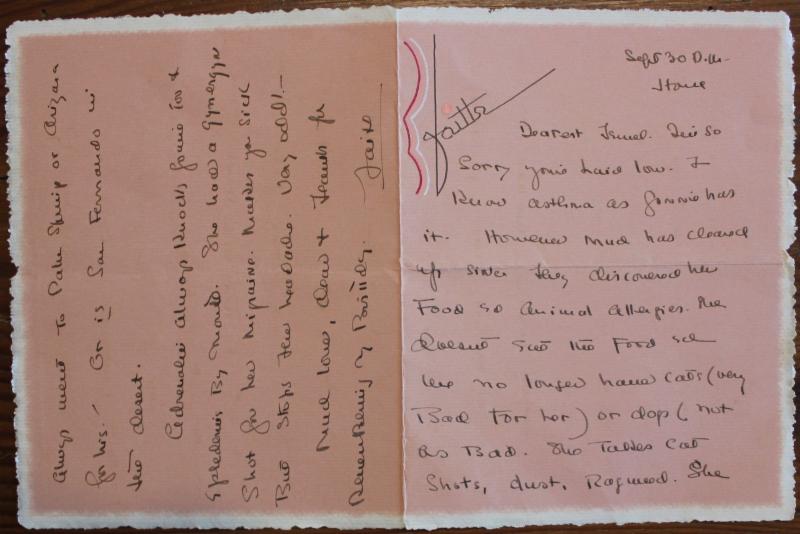 Faith
Sept 30 P.M.
Home
Dearest I'm so
Sorry you're laid low. I
Know asthma as Jinnie has
it. However much has cleared
up since they discovered her
Food so animal allergies. She
doesnt eat the Food
we no longer have cats (very
Bad for her) or dogs (not
as Bad. She Takes Cat
Shots, dust, Ragweed. She
always went to Palm Springs or Arizona
for his. - Or is San Fernando in
the desert.
Adrenalin always knocks Jinnie too &
By mouth. She had a Gynergyn
Shot for her Migraine. Makes you sick
But stops the headache. Very odd! -
Much love, dear & Thanks for
Remembering my Birthday.
Faith